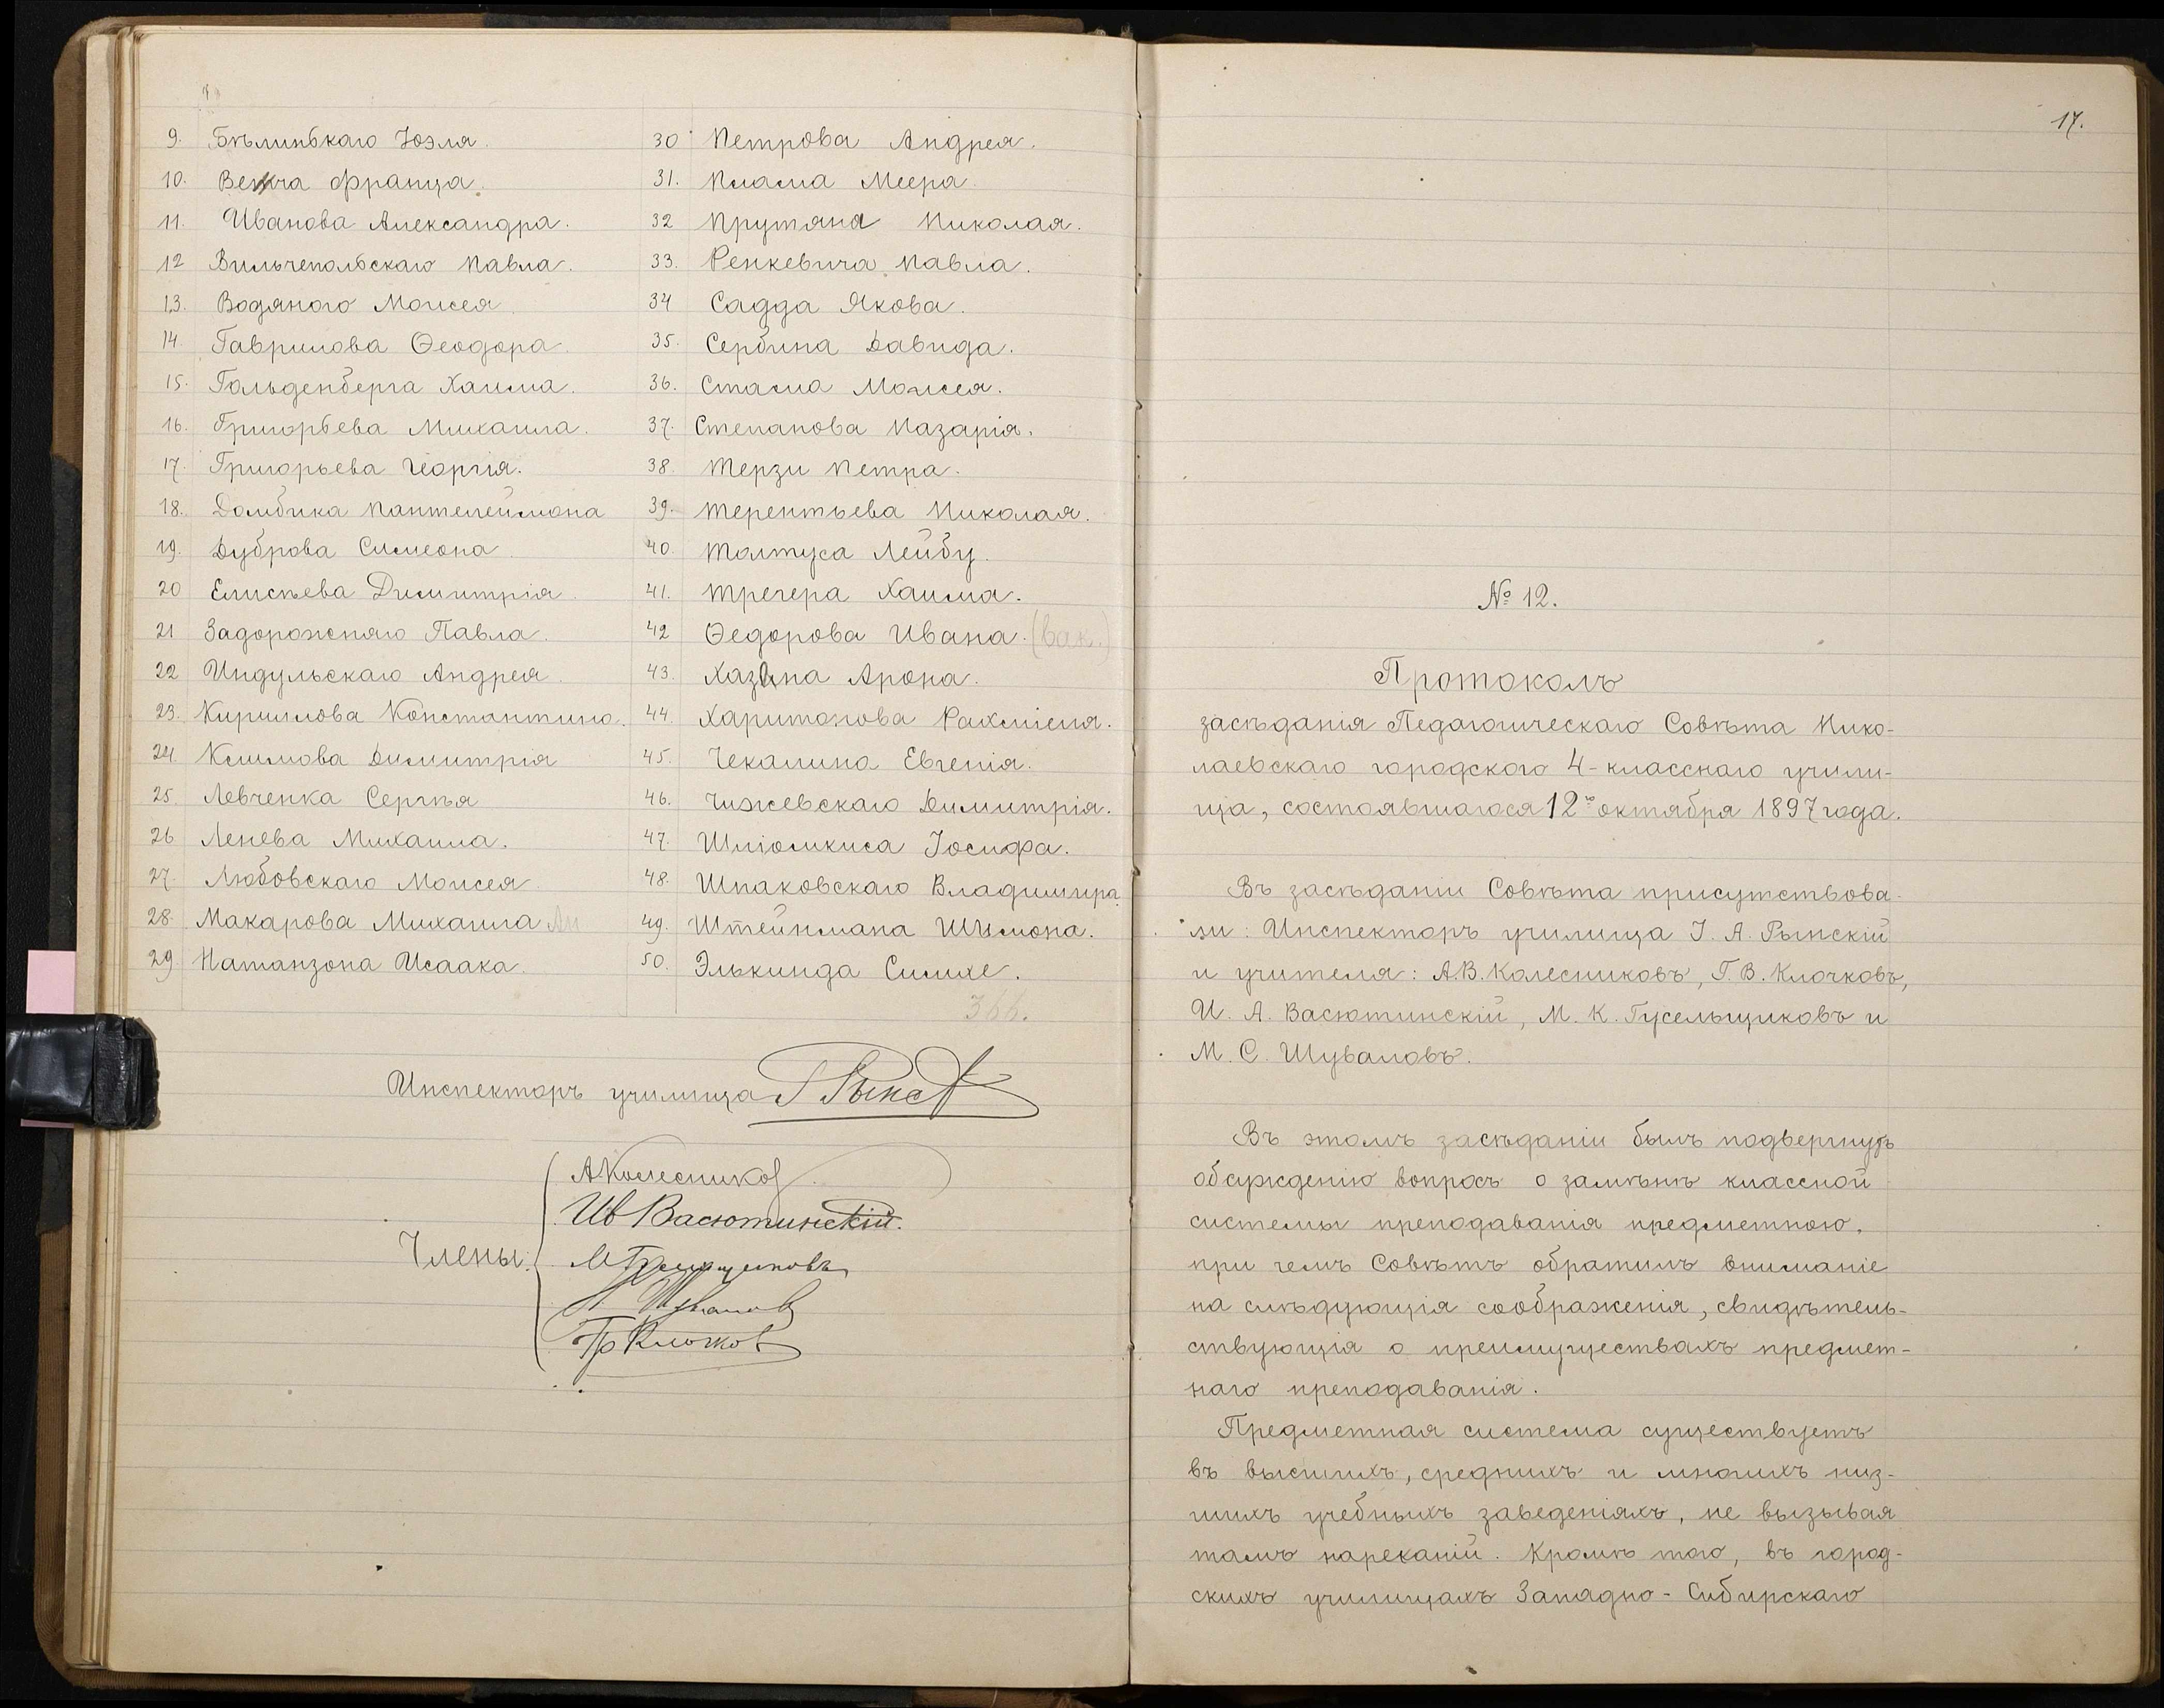 9. Бѣлинскаго Іоэля.
10. Венча Франца.
11. Иванова Александра.
12 Вильчепольскаго Павла.
13. Водяного Моисея.
14. Гаврилова Ѳеодора.
15. Гольденберга Хаима.
16. Григорьева Михаила.
17. Григорьева Георгія.
18. Домбика Пантелеймона
19. Дуброва Симеона.
20 Елисѣева Димитрія.
21 Задорожняго Павла.
22 Индульскаго Андрея.
23. Кириллова Константина.
24. Климова Димитрія
25. Левченка Сергѣя
26 Ленева Михаила.
27. Любовскаго Моисея.
28. Макарова Михаила
29. Натанзона Исаака.
30 Петрова Андрея.
31. Плама Меера.
32 Прутяна Николая.
33. Ренкевича Павла.
34 Садда Якова.
35. Сербина Давида.
36. Стама Моисея.
37. Степанова Назарія.
38. Терзи Петра.
39. Терентьева Николая.
40. Толтуса Лейбу.
41. Тречера Хаима.
42 Ѳедорова Ивана. (вак.)
43. Хазана Арона.
44. Харитонова Рахміеля.
45. Чекалина Евгенія.
46. Чижевскаго Димитрія.
47. Шліомкиса Іосифа.
48. Шпаковскаго Владиміра
49. Штейнмана Шимона.
50. Элькинда Симхе.
366.
Инспекторъ училища І Рынск
Члены:
А Колесников
Ив Васютинскій.
М Гусельщиковъ
М Шувалов
Гр Клочков
17.
№ 12.
Протоколъ
засѣданія Педагогическаго Совѣта Нико-
лаевскаго городского 4-класснаго учили-
ща, состоявшагося 12го октября 1897 года.
Въ засѣданіи Совѣта присутствова-
ли: Инспекторъ училища І. А. Рынскій
и учителя: А. В. Колесниковъ, Г. В. Клочковъ,
И. А. Васютинскій, М. К. Гусельщиковъ и
М. С. Шуваловъ.
Въ этомъ засѣданіи былъ подвергнутъ
обсужденію вопросъ о замѣнѣ классной
системы преподаванія предметною,
при чемъ Совѣтъ обратилъ вниманіе
на слѣдующія соображенія, свидѣтель-
ствующія о преимуществахъ предмет-
наго преподаванія.
Предметная система существуетъ
въ высшихъ, среднихъ и многихъ низ-
шихъ учебныхъ заведеніяхъ, не вызывая
тамъ нареканій. Кромѣ того, въ город-
скихъ училищахъ Западно-Сибирскаго